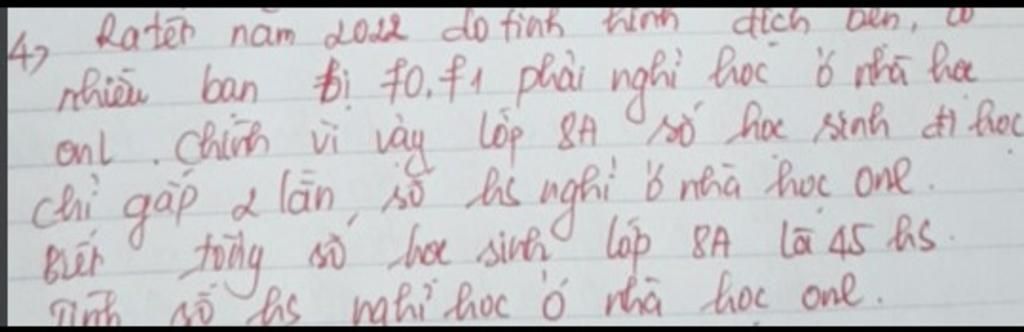 4, Ra tết năm 2022 do tình hình dịch bên, có
nhiều bạn bị f0, f1 phải nghỉ học ở nhà học
onl. Chính vì vậy lớp 8A số học sinh đi học
chỉ gấp 2 lần, số hs nghỉ ở nhà học onl.
Biết tổng số học sinh lớp 8A là 45 hs.
Tính số hs nghỉ học ở nhà học onl.